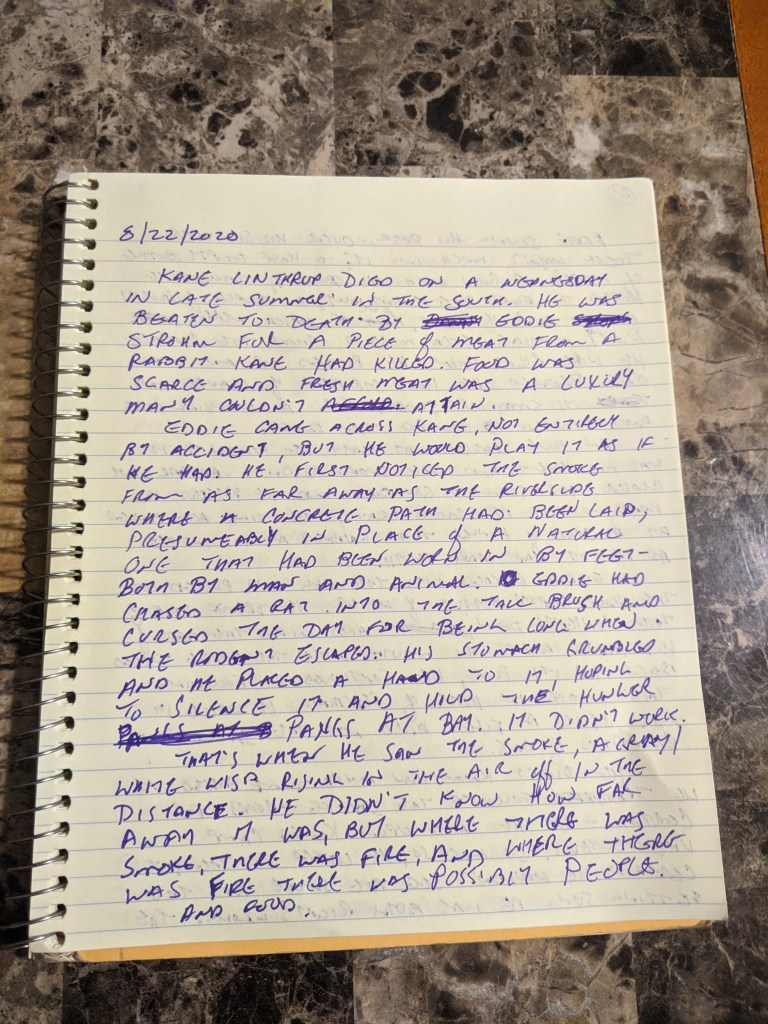 8/22/2020
KANE LINTHRUP DIED ON A WEDNESDAY
IN LATE SUMMER IN THE SOUTH. HE WAS
BEATEN TO DEATH BY EDDIE
STROHM FOR A PIECE of MEAT FROM A
RABBIT KANE HAD KILLED. FOOD WAS
SCARCE AND FRESH MEAT WAS A LUXURY
MANY COULDN'T AFFORD. ATTAIN.
EDDIE CAME ACROSS KANE, NOT ENTIRELY
BY ACCIDENT, BUT HE WOULD PLAY IT AS IF
HE HAD. HE FIRST NOTICED THE SMOKE
FROM AS FAR AWAY AS THE RIVERSIDE
WHERE A CONCRETE PATH HAD BEEN LAID,
PRESUMEABLY IN PLACE of A NATURAL
ONE THAT HAD BEEN WORN IN BY FEET-
BOTH BY MAN AND ANIMAL. EDDIE HAD
CHASED A RAT INTO THE TALL BRUSH AND
CURSED THE DAY FOR BEING LONG WHEN
THE RODENT ESCAPED. HIS STOMACH GRUMBLED
AND HE PLACED A HAND TO IT, HOPING
TO SILENCE IT AND HOLD THE HUNGER
PANGS AT B PANGS AT BAY. IT DIDN'T WORK.
THAT'S WHEN HE SAW THE SMOKE, A GRAY/
WHITE WISP RISING IN THE AIR off IN THE
DISTANCE. HE DIDN'T KNOW HOW FAR
AWAY IT WAS, BUT WHERE THERE WAS
SMOKE, THERE WAS FIRE, AND WHERE THERE
WAS FIRE THERE WAS POSSIBLY PEOPLE.
AND FOOD.